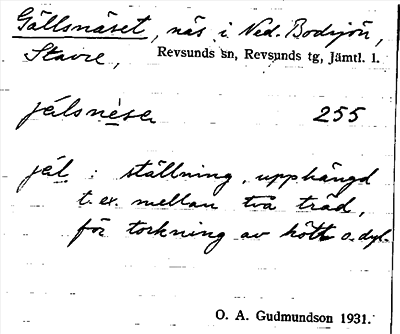 Gällsnäset, näs i Ned. Bodsjön,
Stavre, Revsunds sn, Revsunds tg, Jämtl. l.
jélsnèse 255
jél : ställning, upphängd
t. ex. mellan två träd,
för torkning av kött o. dyl.
O. A. Gudmundson 1931.